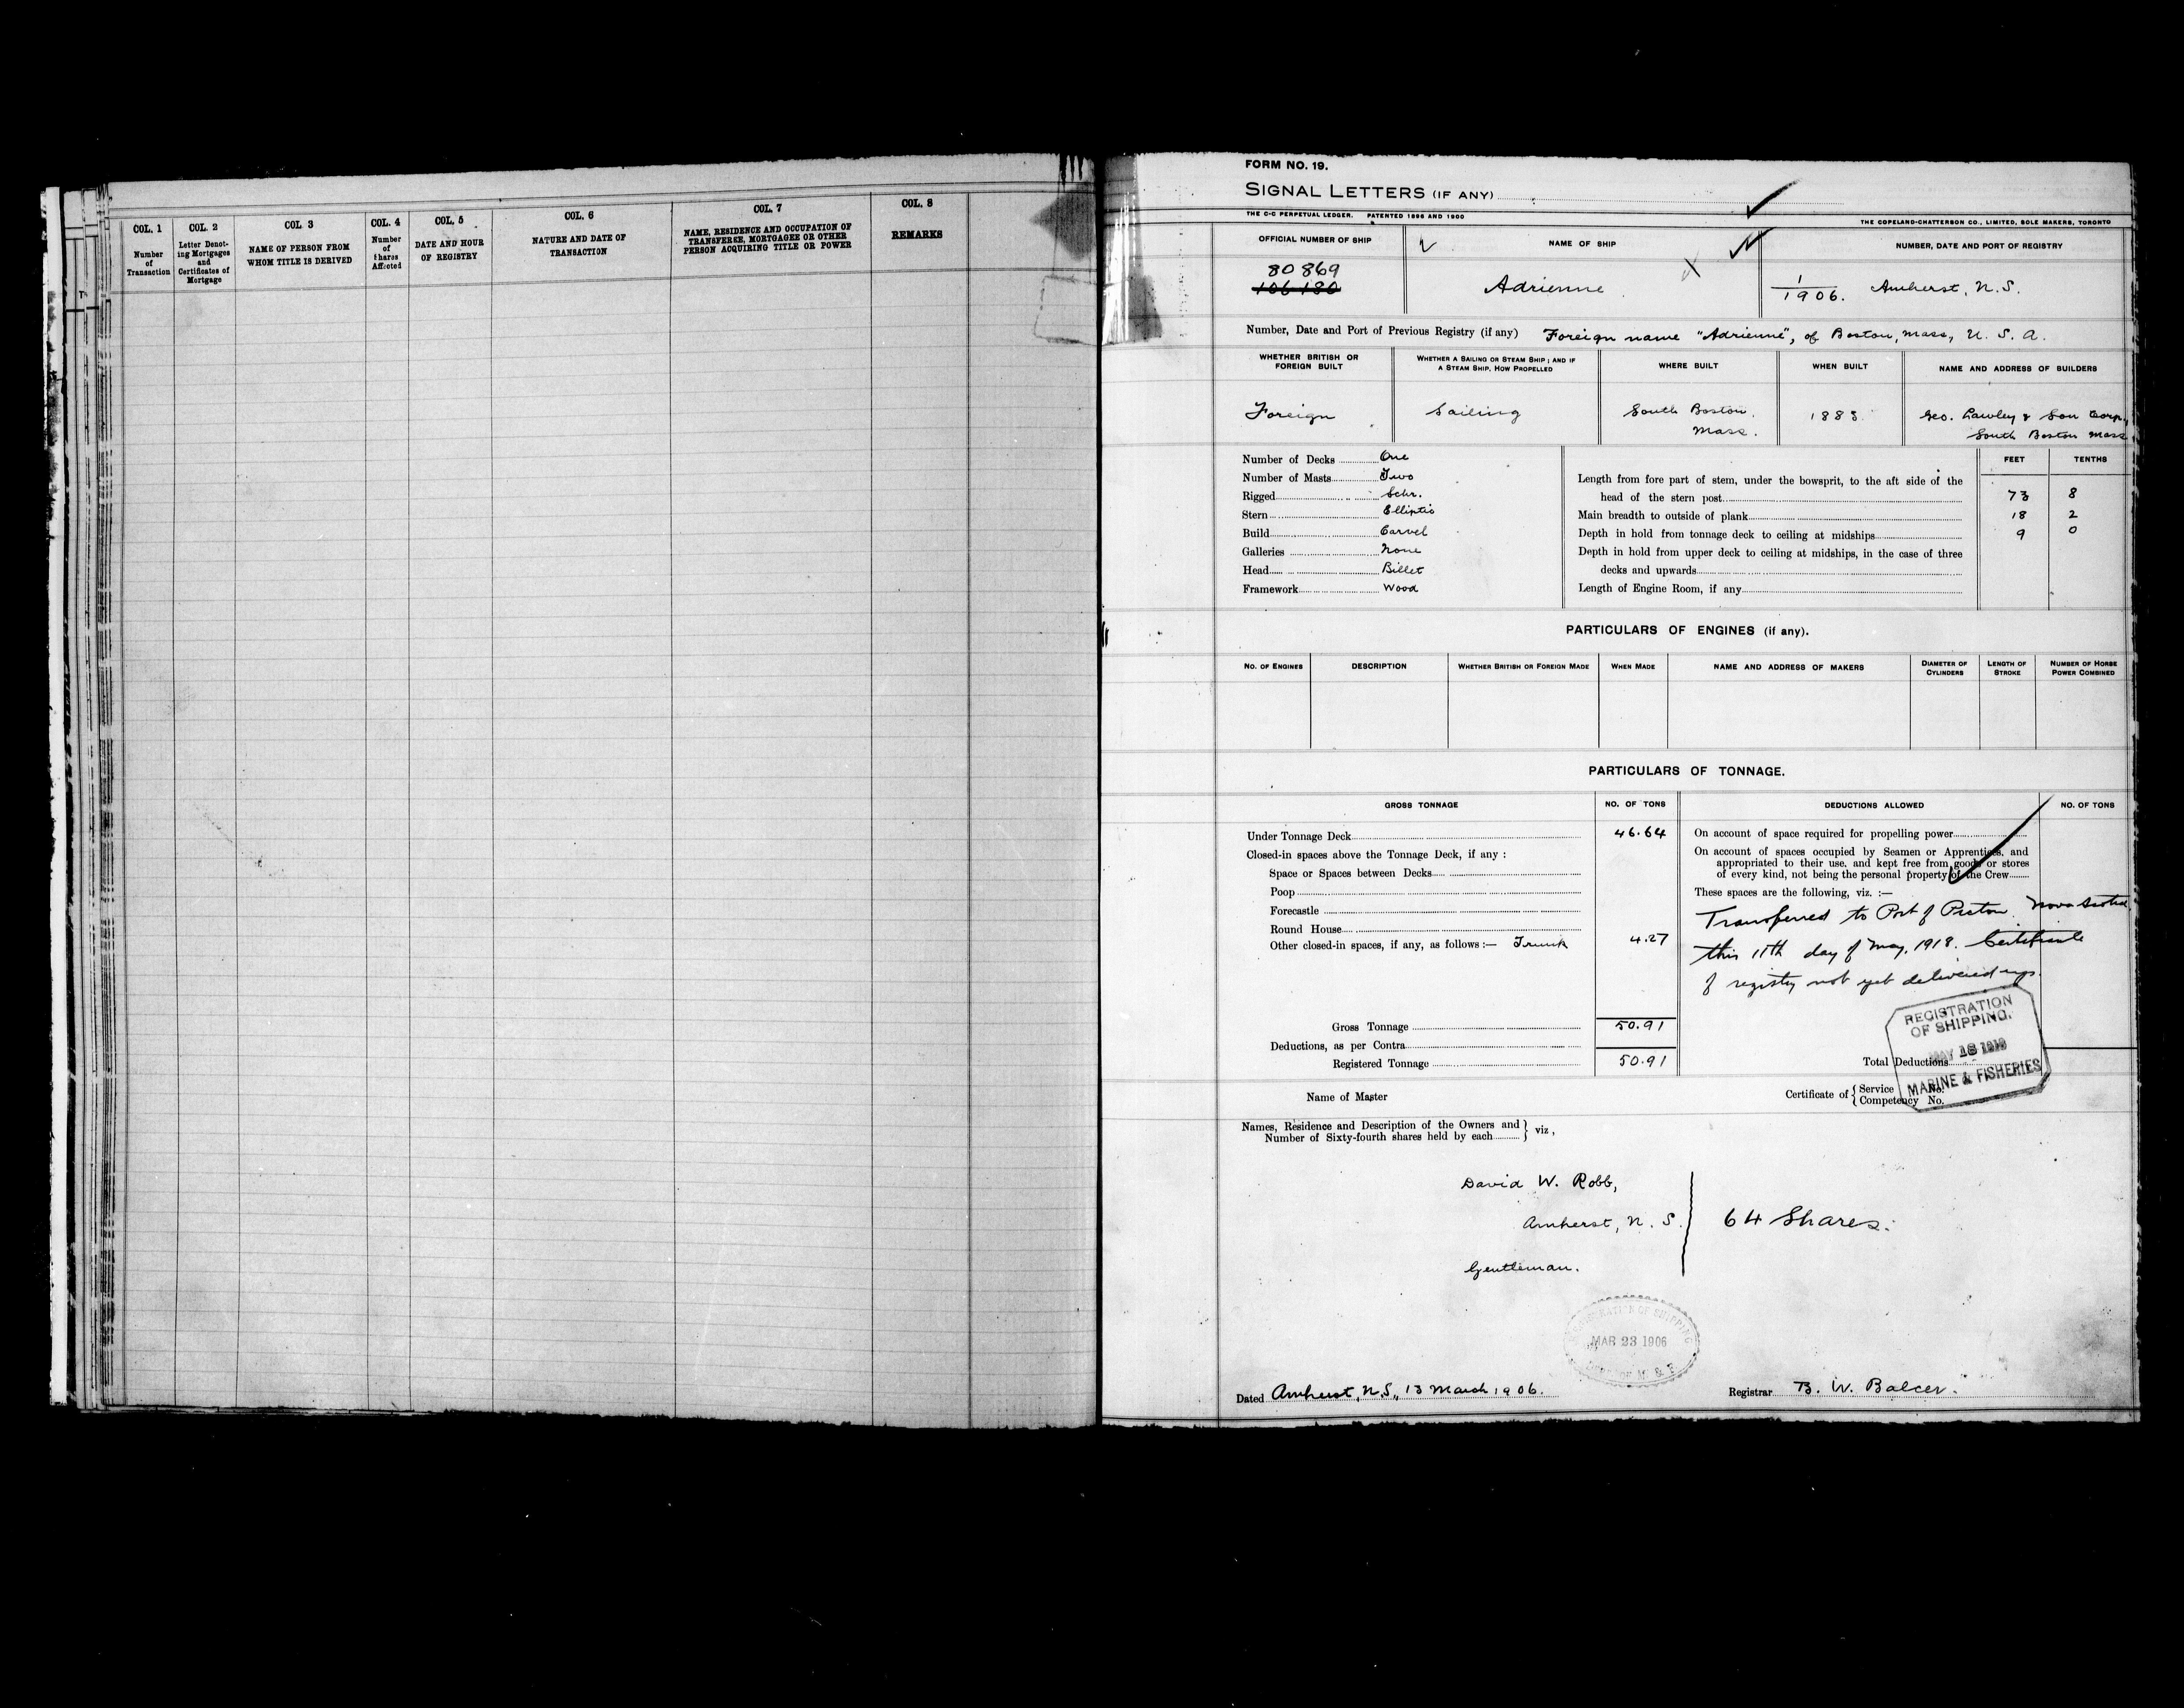 COL. 1
Number
of
Transaction
COL. 2
Letter Denot-
ing Mortgages
and
Certificates of
Mortgage
COL. 3
NAME OF PERSON FROM
WHOM TITLE IS DERIVED
COL. 4
Number
of
Shares
Affected
COL. 5
DATE AND HOUR
OF REGISTRY
COL. 6
NATURE AND DATE OF
TRANSACTION
COL. 7
NAME, RESIDENCE AND OCCUPATION OF
TRANSFEREE, MORTGAGEE OR OTHER
PERSON ACQUIRING TITLE OR POWER
COL. 8
REMARKS
FORM NO. 19.
SIGNAL LETTERS (IF ANY)
THE C-C PERPETUAL LEDGER. PATENTED 1896 AND 1900
THE COPELAND-CHATTERSON CO., LIMITED, SOLE MAKERS, TORONTO
OFFICIAL NUMBER OF SHIP
80869
106180
NAME OF SHIP
Adrienne
NUMBER, DATE AND PORT OF REGISTRY
1/1906. Amherst, N.S.
Number, Date and Port of Previous Registry (if any) Foreign name "Adrienne", of Boston, Mass, U. S. A.
WHETHER BRITISH OR
FOREIGN BUILT
Foreign
WHETHER A SAILING OR STEAM SHIP; AND IF
A STEAM SHIP, HOW PROPELLED
Sailing
WHERE BUILT
South Boston.
Mass.
WHEN BUILT
1883
NAME AND ADDRESS OF BUILDERS
Geo. Lawley & Son Corp.,
South Boston Mass
Number of Decks One
Number of Masts Two
Rigged Schr.
Stern Elliptic
Build Carvel
Galleries None
Head Billet
Framework Wood
FEET TENTHS
Length from fore part of stem, under the bowsprit, to the aft side of the
head of the stern post 73 8
Main breadth to outside of plank 18 2
Depth in hold from tonnage deck to ceiling at midships 9 0
Depth in hold from upper deck to ceiling at midships, in the case of three
decks and upwards
Length of Engine Room, if any
PARTICULARS OF ENGINES (if any).
NO. OF ENGINES
DESCRIPTION
WHETHER BRITISH OR FOREIGN MADE
WHEN MADE
NAME AND ADDRESS OF MAKERS
DIAMETER OF
CYLINDERS
LENGTH OF
STROKE
NUMBER OF HORSE
POWER COMBINED
PARTICULARS OF TONNAGE.
GROSS TONNAGE NO. OF TONS
Under Tonnage Deck 46.64
Closed-in spaces above the Tonnage Deck, if any :
Space or Spaces between Decks
Poop
Forecastle
Round House
Other closed-in spaces, if any, as follows :— Trunk 4.27
Gross Tonnage 50.91
Deductions, as per Contra
Registered Tonnage 50.91
DEDUCTIONS ALLOWED NO. OF TONS
On account of space required for propelling power
On account of spaces occupied by Seamen or Apprentices, and
appropriated to their use, and kept free from goods or stores
of every kind, not being the personal property of the Crew
These spaces are the following, viz. :—
Transferred to Port of Pictou Nova Scotia
this 11th day of May, 1918. Certificate
of registry not yet delivered up.
REGISTRATION
OF SHIPPING.
MAY 18 1918
MARINE & FISHERIES
Total Deductions
Name of Master
Certificate of { Service No.
Competency No.
Names, Residence and Description of the Owners and
Number of Sixty-fourth shares held by each } viz,
David W. Robb,
Amherst, N. S.
Gentleman.
64 Shares.
REGISTRATION OF SHIPPING
MAR 23 1906
DEPT OF M. & F.
Dated Amherst, N.S., 13 March 1906.
Registrar B. W. Balcer.